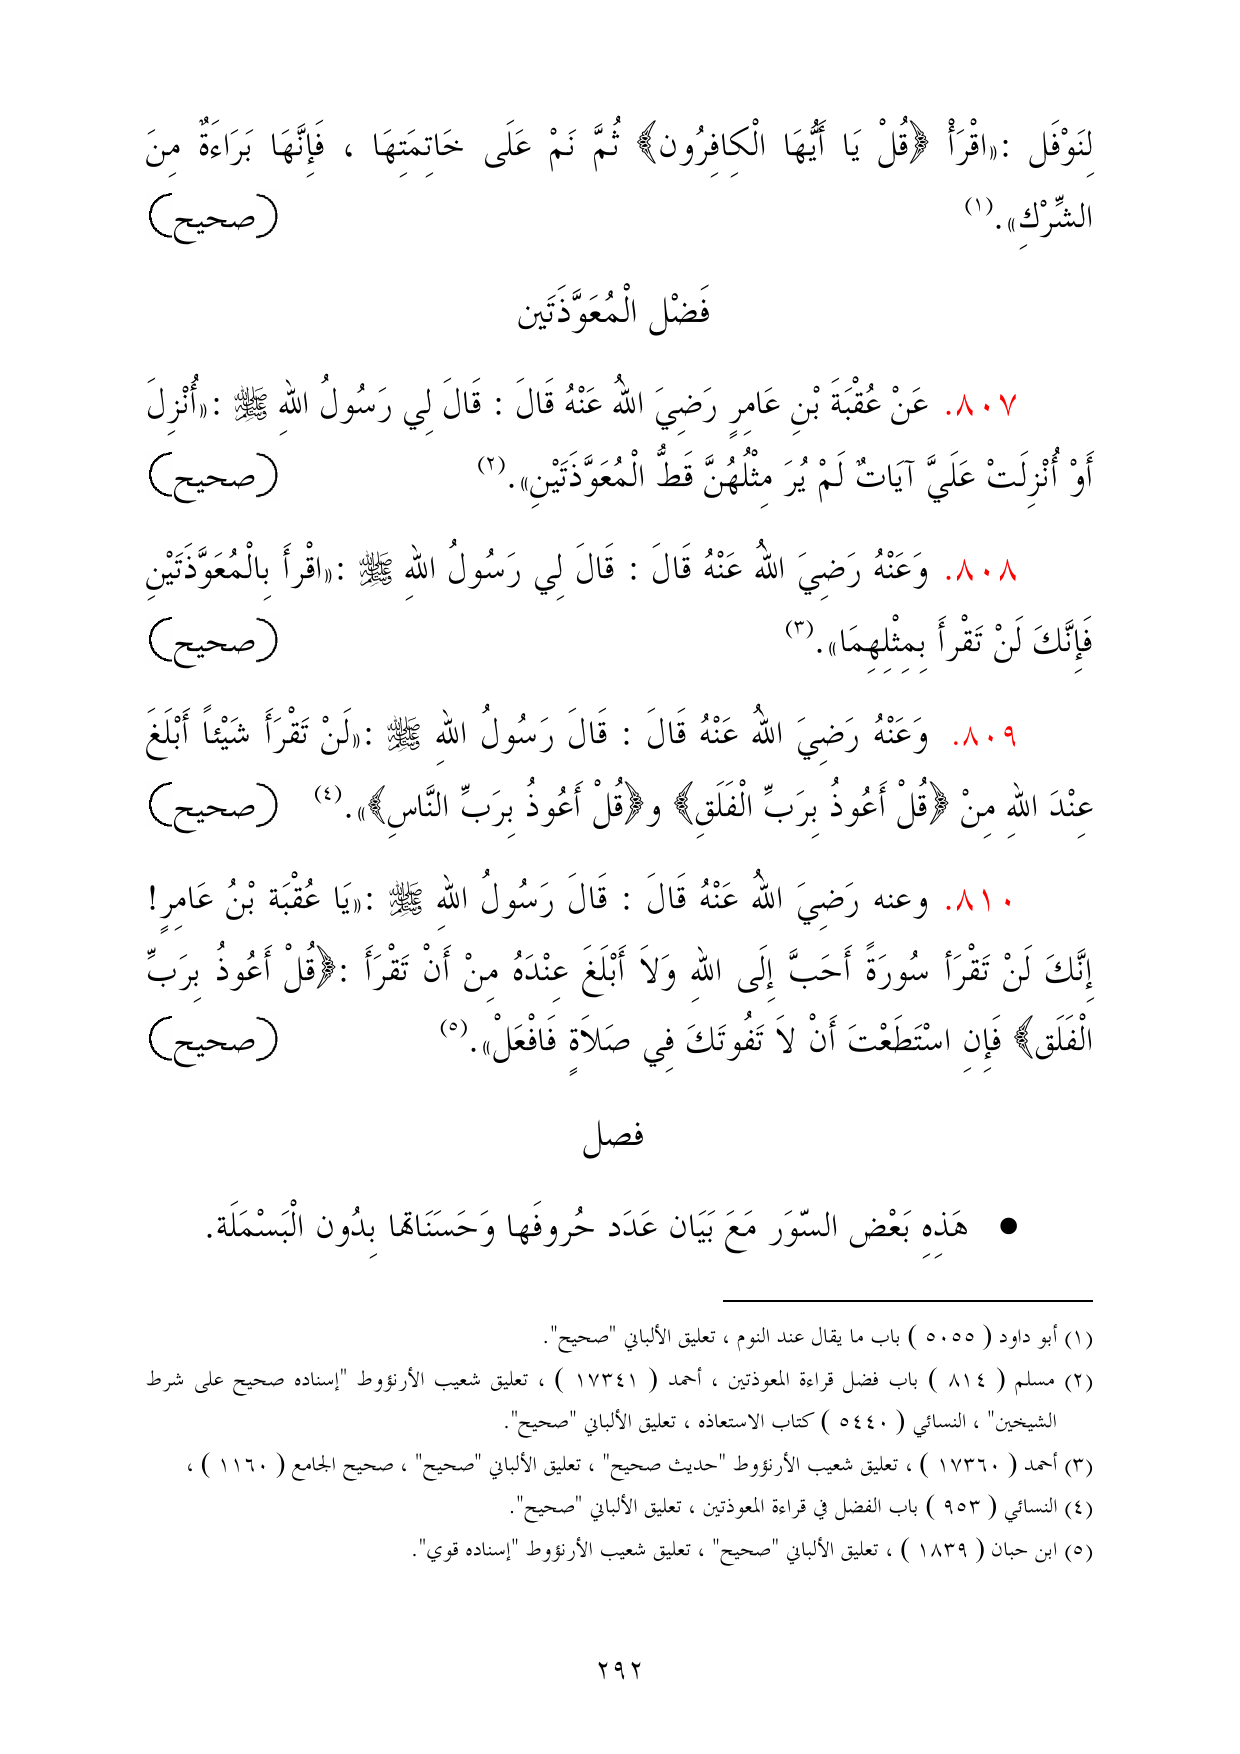 لِنَوْفَل :«اقْرَأْ ﴿قُلْ يَا أَيُّهَا الْكَافِرُون﴾ ثُمَّ نَمْ عَلَى خَاتِمَتِهَا ، فَإِنَّهَا بَرَاءَةٌ مِنَ
الشِّرْكِ».(١) (صحيح)
فَضْل الْمُعَوَّذَتَين
٨٠٧. عَنْ عُقْبَةَ بْنِ عَامِرٍ رَضِيَ اللهُ عَنْهُ قَالَ : قَالَ لِي رَسُولُ اللهِ ﷺ :«أُنْزِلَ
أَوْ أُنْزِلَتْ عَلَيَّ آيَاتٌ لَمْ يُرَ مِثْلُهُنَّ قَطُّ الْمُعَوَّذَتَيْنِ».(٢) (صحيح)
٨٠٨. وَعَنْهُ رَضِيَ اللهُ عَنْهُ قَالَ : قَالَ لِي رَسُولُ اللهِ ﷺ :«اقْرأَ بِالْمُعَوَّذَتَيْنِ
فَإِنَّكَ لَنْ تَقْرأَ بِمِثْلِهِمَا».(٣) (صحيح)
٨٠٩. وَعَنْهُ رَضِيَ اللهُ عَنْهُ قَالَ : قَالَ رَسُولُ اللهِ ﷺ :«لَنْ تَقْرَأَ شَيْئاً أَبْلَغَ
عِنْدَ اللهِ مِنْ ﴿قُلْ أَعُوذُ بِرَبِّ الْفَلَقِ﴾ و﴿قُلْ أَعُوذُ بِرَبِّ النَّاسِ﴾».(٤) (صحيح)
٨١٠. وعنه رَضِيَ اللهُ عَنْهُ قَالَ : قَالَ رَسُولُ اللهِ ﷺ :«يَا عُقْبَة بْنُ عَامِرٍ!
إِنَّكَ لَنْ تَقْرَأ سُورَةً أَحَبَّ إِلَى اللهِ وَلاَ أَبْلَغَ عِنْدَهُ مِنْ أَنْ تَقْرَأَ :﴿قُلْ أَعُوذُ بِرَبِّ
الْفَلَقِ﴾ فَإِنِ اسْتَطَعْتَ أَنْ لاَ تَفُوتَكَ فِي صَلاَةٍ فَافْعَلْ».(٥) (صحيح)
فصل
● هَذِهِ بَعْض السّوَر مَعَ بَيَان عَدَد حُروفَها وَحَسَنَاتها بِدُون الْبَسْمَلَة.
(١) أبو داود ( ٥٠٥٥ ) باب ما يقال عند النوم ، تعليق الألباني "صحيح".
(٢) مسلم ( ٨١٤ ) باب فضل قراءة المعوذتين ، أحمد ( ١٧٣٤١ ) ، تعليق شعيب الأرنؤوط "إسناده صحيح على شرط
الشيخين" ، النسائي ( ٥٤٤٠ ) كتاب الاستعاذه ، تعليق الألباني "صحيح".
(٣) أحمد ( ١٧٣٦٠ ) ، تعليق شعيب الأرنؤوط "حديث صحيح" ، تعليق الألباني "صحيح" ، صحيح الجامع ( ١١٦٠ ) ،
(٤) النسائي ( ٩٥٣ ) باب الفضل في قراءة المعوذتين ، تعليق الألباني "صحيح".
(٥) ابن حبان ( ١٨٣٩ ) ، تعليق الألباني "صحيح" ، تعليق شعيب الأرنؤوط "إسناده قوي".
٢٩٢